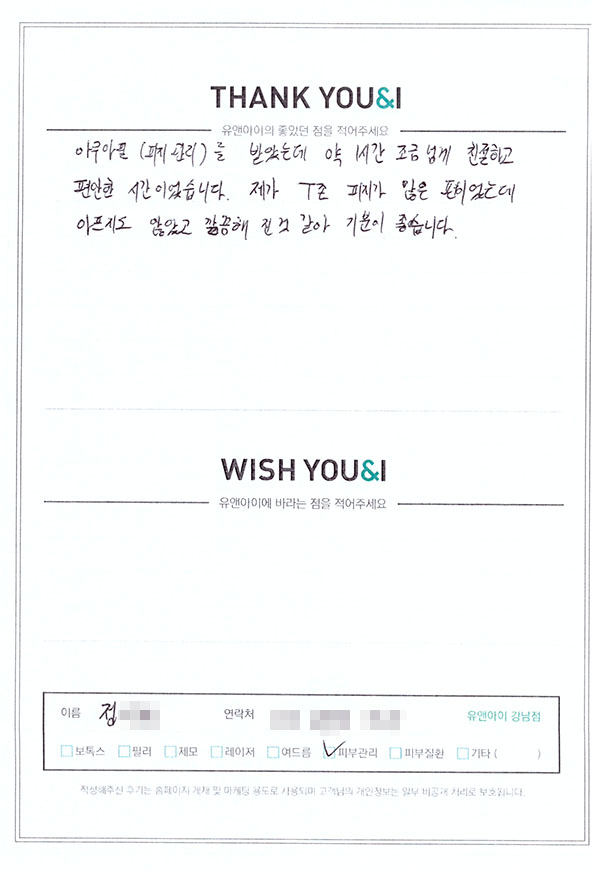 THANK YOU&I
유앤아이의 좋았던 점을 적어주세요
아쿠아필 (피지관리)를 받았는데 약 1시간 조금 넘게 친절하고
편안한 시간이었습니다. 제가 T존 피지가 많은 편이었는데
아프지도 않았고 깔끔해 진것 같아 기분이 좋습니다.
WISH YOU&I
유앤아이에 바라는 점을 적어주세요
이름 정 연락처 유앤아이 강남점
보톡스 필러 제모 레이저 여드름 피부관리 피부질환 기타 ( )
작성해주신 후기는 홈페이지 게재 및 마케팅 용도로 사용되며 고객님의 개인정보는 일부 비공개 처리로 보호됩니다.